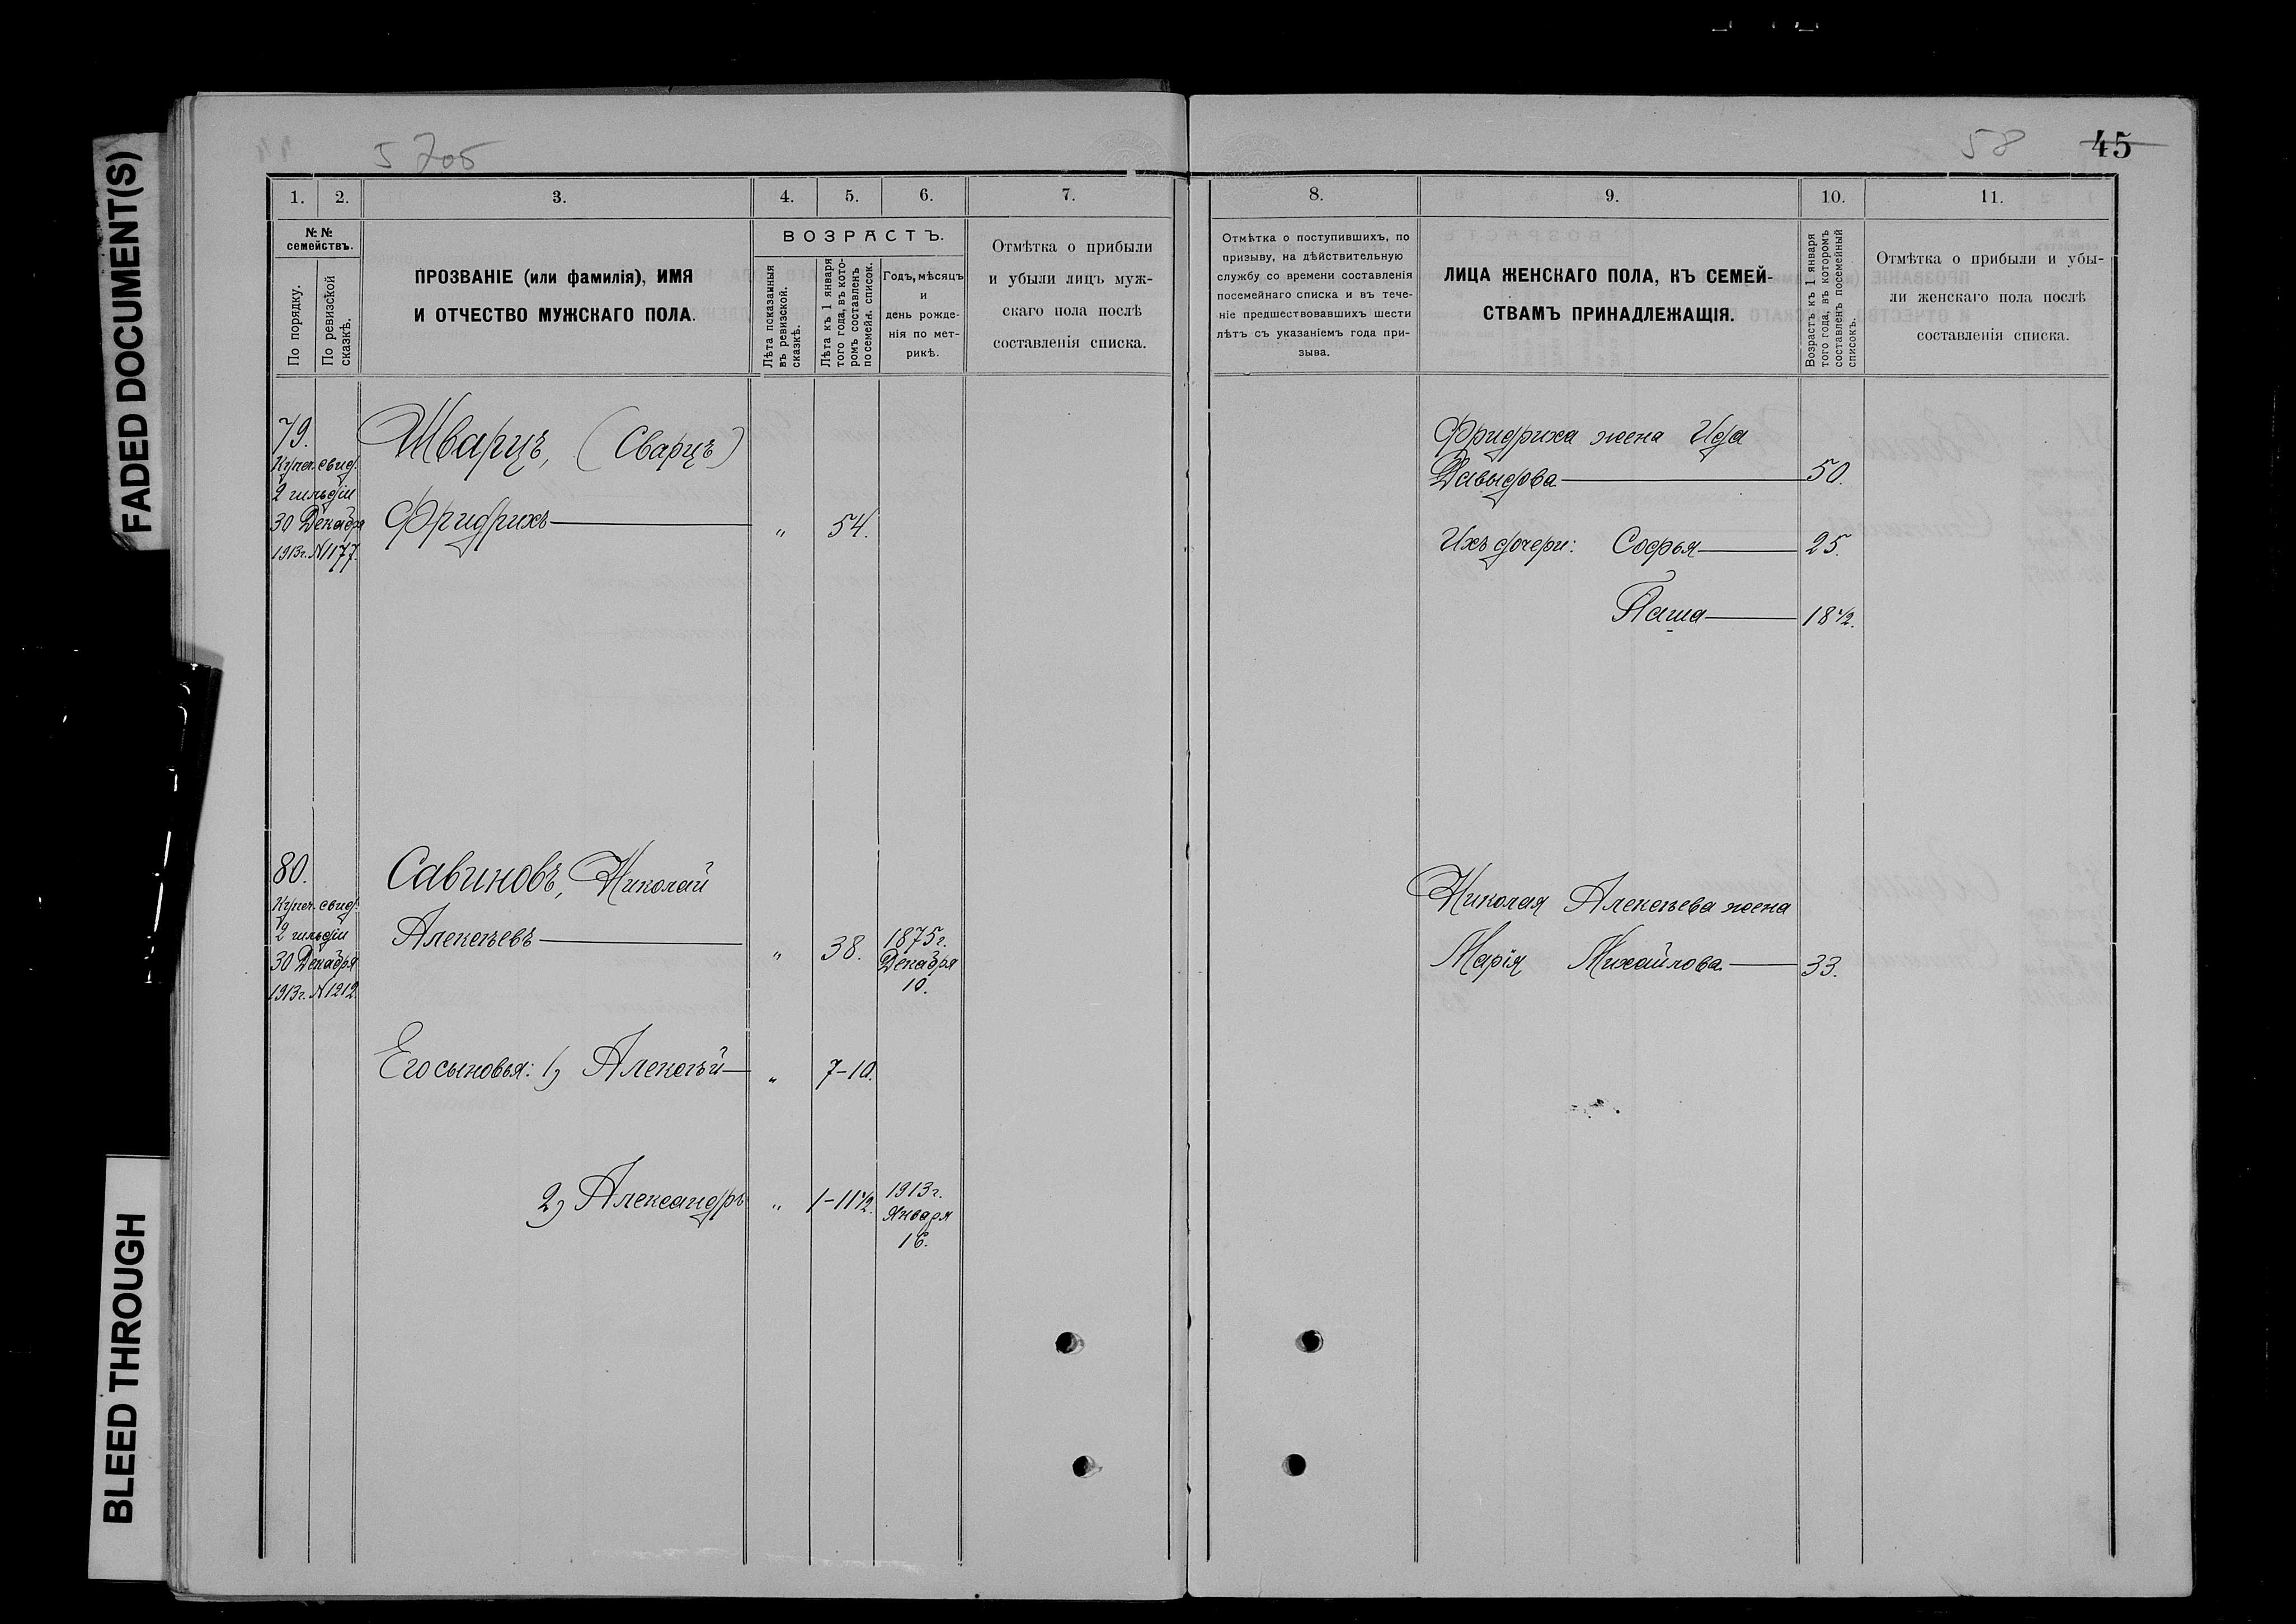 FADED DOCUMENT(S)
BLEED THROUGH
5705
58
45
1. 2. 3. 4. 5. 6. 7.
№ №
семействъ.
По порядку.
По ревизской
сказкѣ.
ПРОЗВАНІЕ (или фамилія), ИМЯ
И ОТЧЕСТВО МУЖСКАГО ПОЛА.
ВОЗРАСТЪ.
Лѣта показанныя
въ ревизской.
сказкѣ.
Лѣта къ 1 января
того года, въ кото-
ромъ составленъ
посемейн. список.
Годъ, мѣсяцъ
и
день рожде-
нія по мет-
рикѣ.
Отмѣтка о прибыли
и убыли лицъ муж-
скаго пола послѣ
составленія списка.
79.
Купеч. свид.
2 гильдіи
30 Декабря
1913г. №1177.
Шварцъ, (Сварцъ)
Фридрихъ — „ 54.
80.
Купеч. свид.
2 гильдіи
30 Декабря
1913г. №1212.
Савиновъ, Николай
Алексѣевъ — „ 38.
1875г.
Декабря
10.
Его сыновья: 1) Алексѣй — „ 7-10.
2) Александръ „ 1-11½.
1913г.
Января
16.
8. 9. 10. 11.
Отмѣтка о поступившихъ, по
призыву, на дѣйствительную
службу со времени составленія
посемейнаго списка и въ тече-
ніе предшествовавшихъ шести
лѣтъ съ указаніемъ года при-
зыва.
ЛИЦА ЖЕНСКАГО ПОЛА, КЪ СЕМЕЙ-
СТВАМЪ ПРИНАДЛЕЖАЩІЯ.
Возрастъ къ 1 января
того года, въ которомъ
составленъ посемейный
списокъ.
Отмѣтка о прибыли и убы-
ли женскаго пола послѣ
составленія списка.
Фридриха жена Ида
Давыдова — 50.
Ихъ дочери: Софья — 25.
Паша — 18½.
Николая Алексѣева жена
Марія Михайлова — 33.